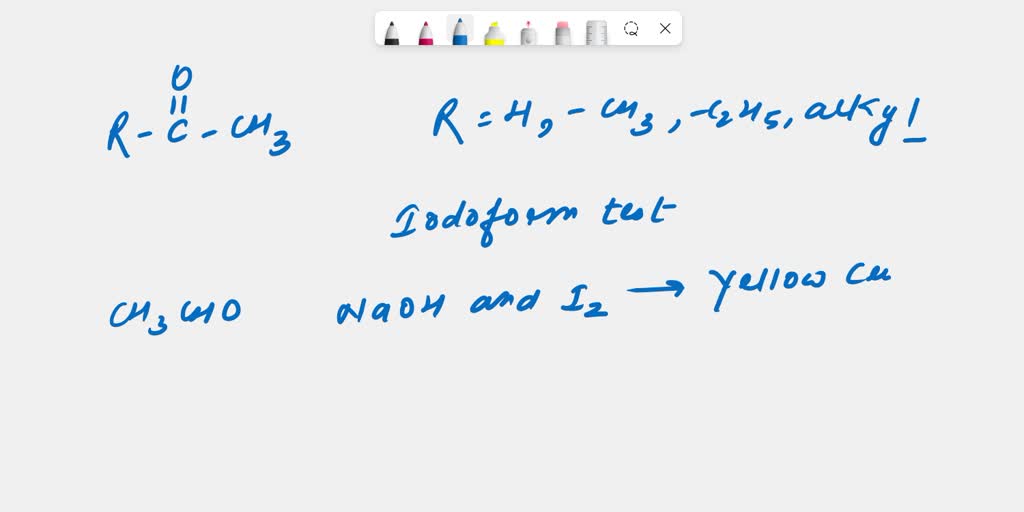 O
||
R - C - CH3 R = H, - CH3, -C2H5, alkyl
Iodoform test
CH3CHO NaOH and I2 → Yellow